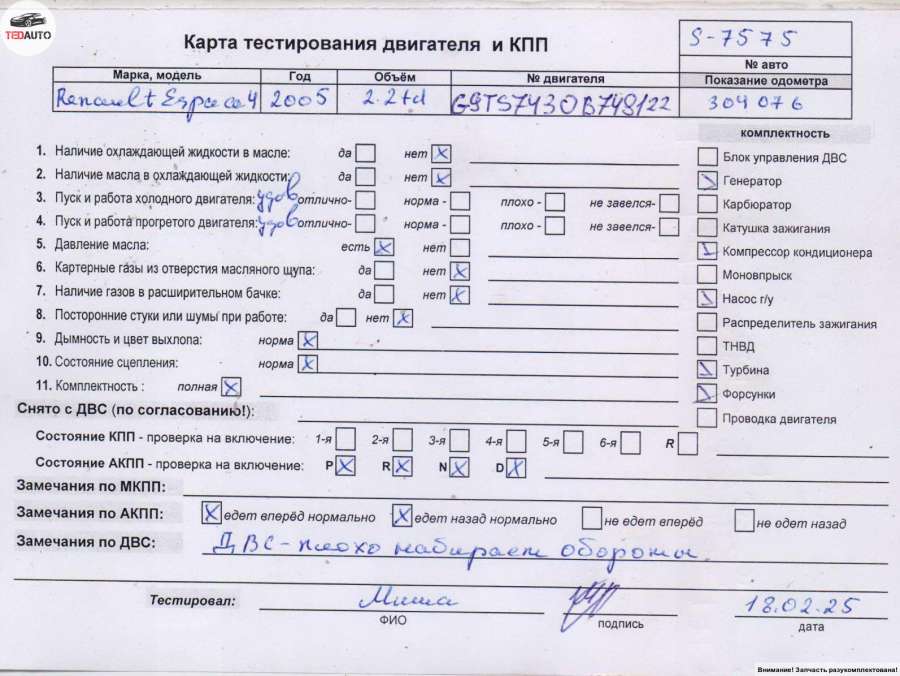 TEDAUTO
Карта тестирования двигателя и КПП
S-7575
№ авто
Марка, модель Год Объём № двигателя Показание одометра
Renault Espace 4 2005 2.2td G9T5743OB748122 304076
комплектность
1. Наличие охлаждающей жидкости в масле: да нет x
Блок управления ДВС
2. Наличие масла в охлаждающей жидкости: да нет x
Генератор
3. Пуск и работа холодного двигателя: удов отлично- норма - плохо - не завелся-
Карбюратор
4. Пуск и работа прогретого двигателя: удов отлично- норма - плохо - не завелся-
Катушка зажигания
5. Давление масла: есть x нет
Компрессор кондиционера
6. Картерные газы из отверстия масляного щупа: да нет x
Моновпрыск
7. Наличие газов в расширительном бачке: да нет x
Насос г/у
8. Посторонние стуки или шумы при работе: да нет x
Распределитель зажигания
9. Дымность и цвет выхлопа: норма x
ТНВД
10. Состояние сцепления: норма x
Турбина
11. Комплектность : полная x
Форсунки
Снято с ДВС (по согласованию!):
Проводка двигателя
Состояние КПП - проверка на включение: 1-я 2-я 3-я 4-я 5-я 6-я R
Состояние АКПП - проверка на включение: P x R x N x D x
Замечания по МКПП:
Замечания по АКПП: x едет вперёд нормально x едет назад нормально не едет вперёд не едет назад
Замечания по ДВС: ДВС - плохо набирает обороты.
Тестировал: Миша
18.02.25
ФИО подпись дата
Внимание! Запчасть разукомплектована!